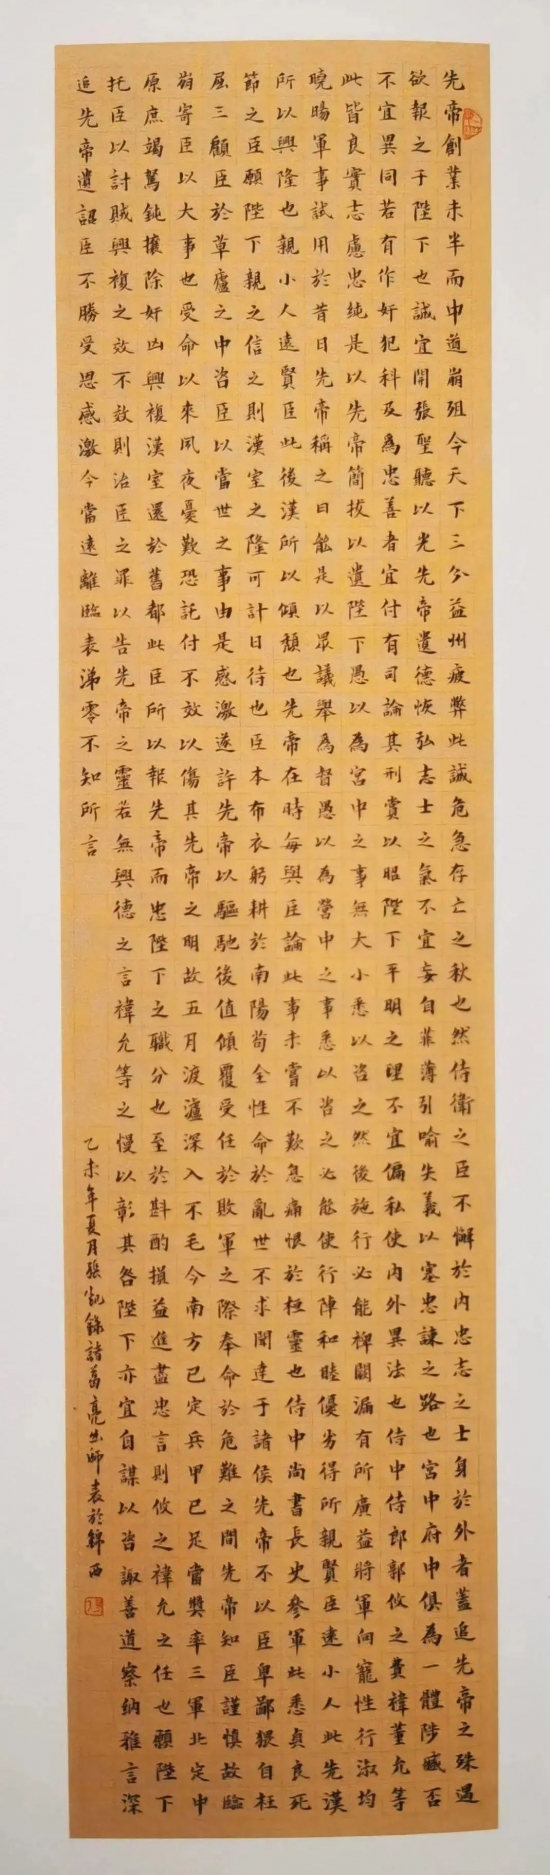 先帝創業未半而中道崩殂今天下三分益州疲弊此誠危急存亡之秋也然侍衛之臣不懈於內忠志之士身於外者蓋追先帝之殊遇
欲報之于陛下也誠宜開張聖聽以光先帝遺德恢弘志士之氣不宜妄自菲薄引喻失義以塞忠諫之路也宮中府中俱為一體陟臧否
不宜異同若有作奸犯科及為忠善者宜付有司論其刑賞以昭陛下平明之理不宜偏私使內外異法也侍中侍郎郭攸之費禕董允等
此皆良實志慮忠純是以先帝簡拔以遺陛下愚以為宮中之事無大小悉以咨之然後施行必能裨闕漏有所廣益將軍向寵性行淑均
曉暢軍事試用於昔日先帝稱之曰能是以眾議舉為督愚以為營中之事悉以咨之必能使行陣和睦優劣得所親賢臣遠小人此先漢
所以興隆也親小人遠賢臣此後漢所以傾頹也先帝在時每與臣論此事未嘗不歎息痛恨於桓靈也侍中尚書長史參軍此悉貞良死
節之臣願陛下親之信之則漢室之隆可計日待也臣本布衣躬耕於南陽苟全性命於亂世不求聞達于諸侯先帝不以臣卑鄙猥自枉
屈三顧臣於草廬之中咨臣以當世之事由是感激遂許先帝以驅馳後值傾覆受任於敗軍之際奉命於危難之間先帝知臣謹慎故臨
崩寄臣以大事也受命以來夙夜憂歎恐託付不效以傷其先帝之明故五月渡瀘深入不毛今南方已定兵甲已足當獎率三軍北定中
原庶竭駑鈍攘除奸凶興複漢室還於舊都此臣所以報先帝而忠陛下之職分也至於斟酌損益進盡忠言則攸之禕允之任也願陛下
托臣以討賊興複之效不效則治臣之罪以告先帝之靈若無興德之言禕允等之慢以彰其咎陛下亦宜自謀以咨諏善道察納雅言深
追先帝遺詔臣不勝受恩感激今當遠離臨表涕零不知所言
乙未年夏月張凱錄諸葛亮出師表於錦西